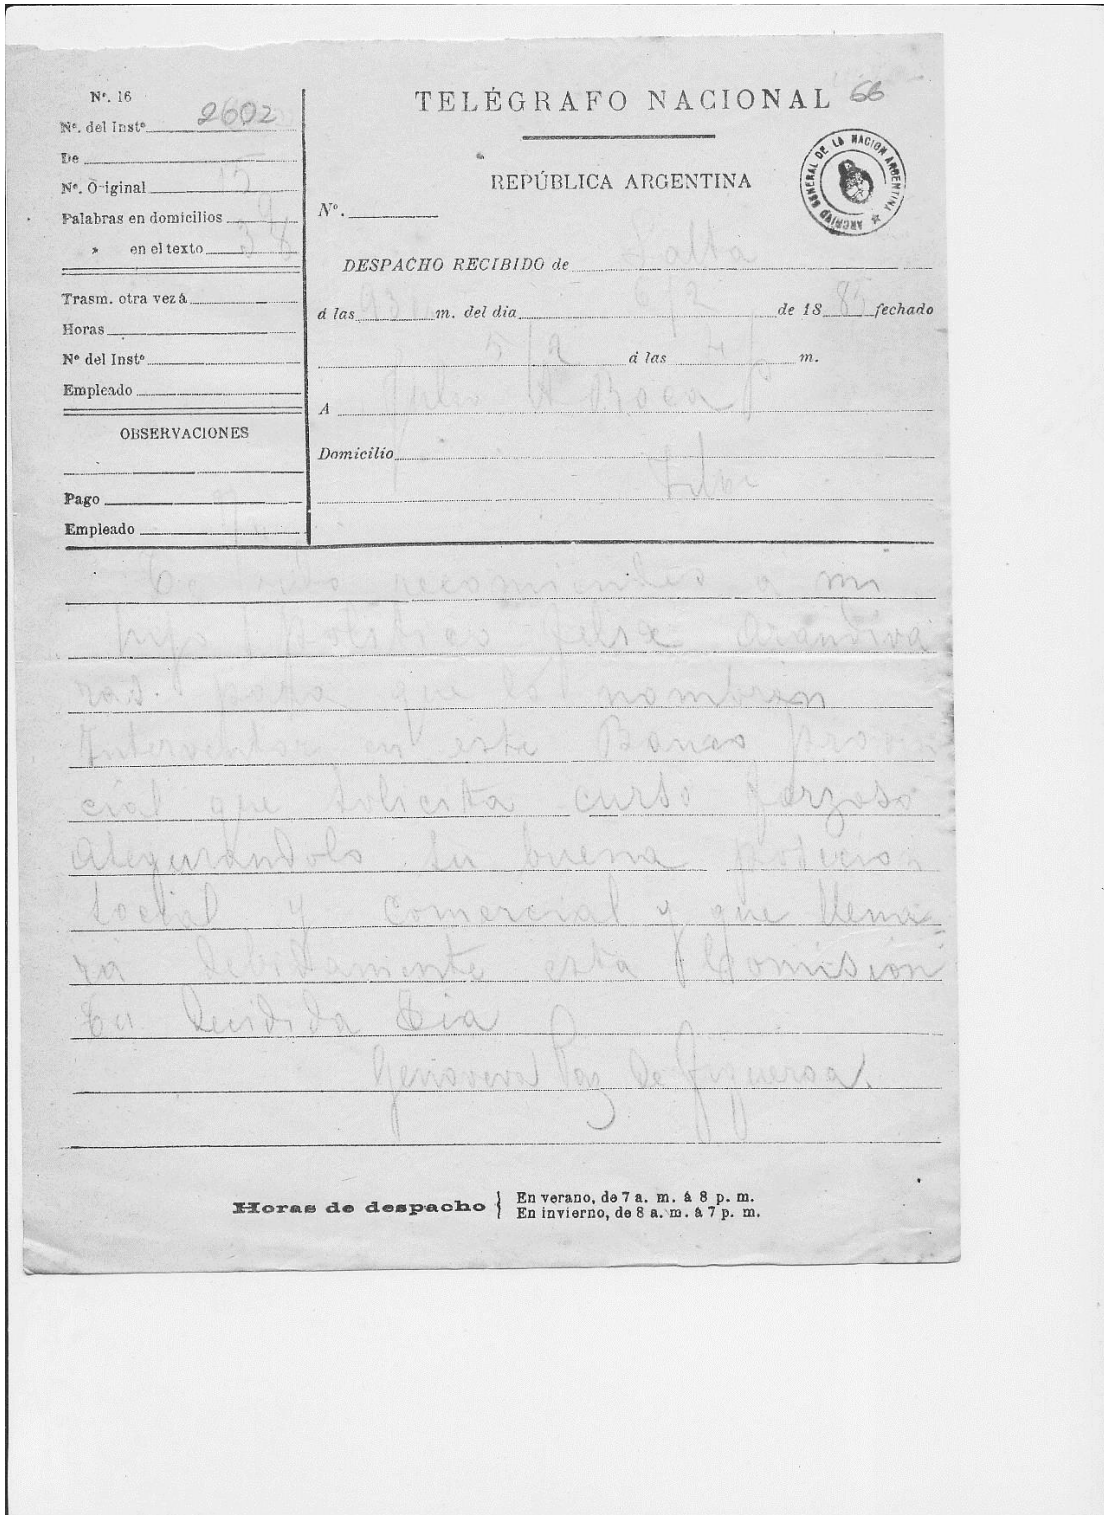 Nº. 16
Nº. del Instº 2602
De
Nº. Original 15
Palabras en domicilios 9
» en el texto 38
Trasm. otra vez á
Horas
Nº del Instº
Empleado
OBSERVACIONES
Pago
Empleado
TELÉGRAFO NACIONAL 66
REPÚBLICA ARGENTINA
ARCHIVO GENERAL DE LA NACION ARGENTINA
Nº.
DESPACHO RECIBIDO de Salta
á las 931 m. del dia 6/2 de 1885 fechado
5/2 á las 4 p m.
A Julio A Roca
Domicilio
Te recomiendes a mi
hijo politico felix
ras. para que lo nombren
Interventor en este Banco provin
cial que solicita curso forzoso
asegurandolo su buena posicion
social y comercial y que llena-
ra debidamente esta Comision
tu decidida tia
Genoveva Paz de Figueroa.
Horas de despacho } En verano, de 7 a. m. á 8 p. m.
En invierno, de 8 a. m. á 7 p. m.